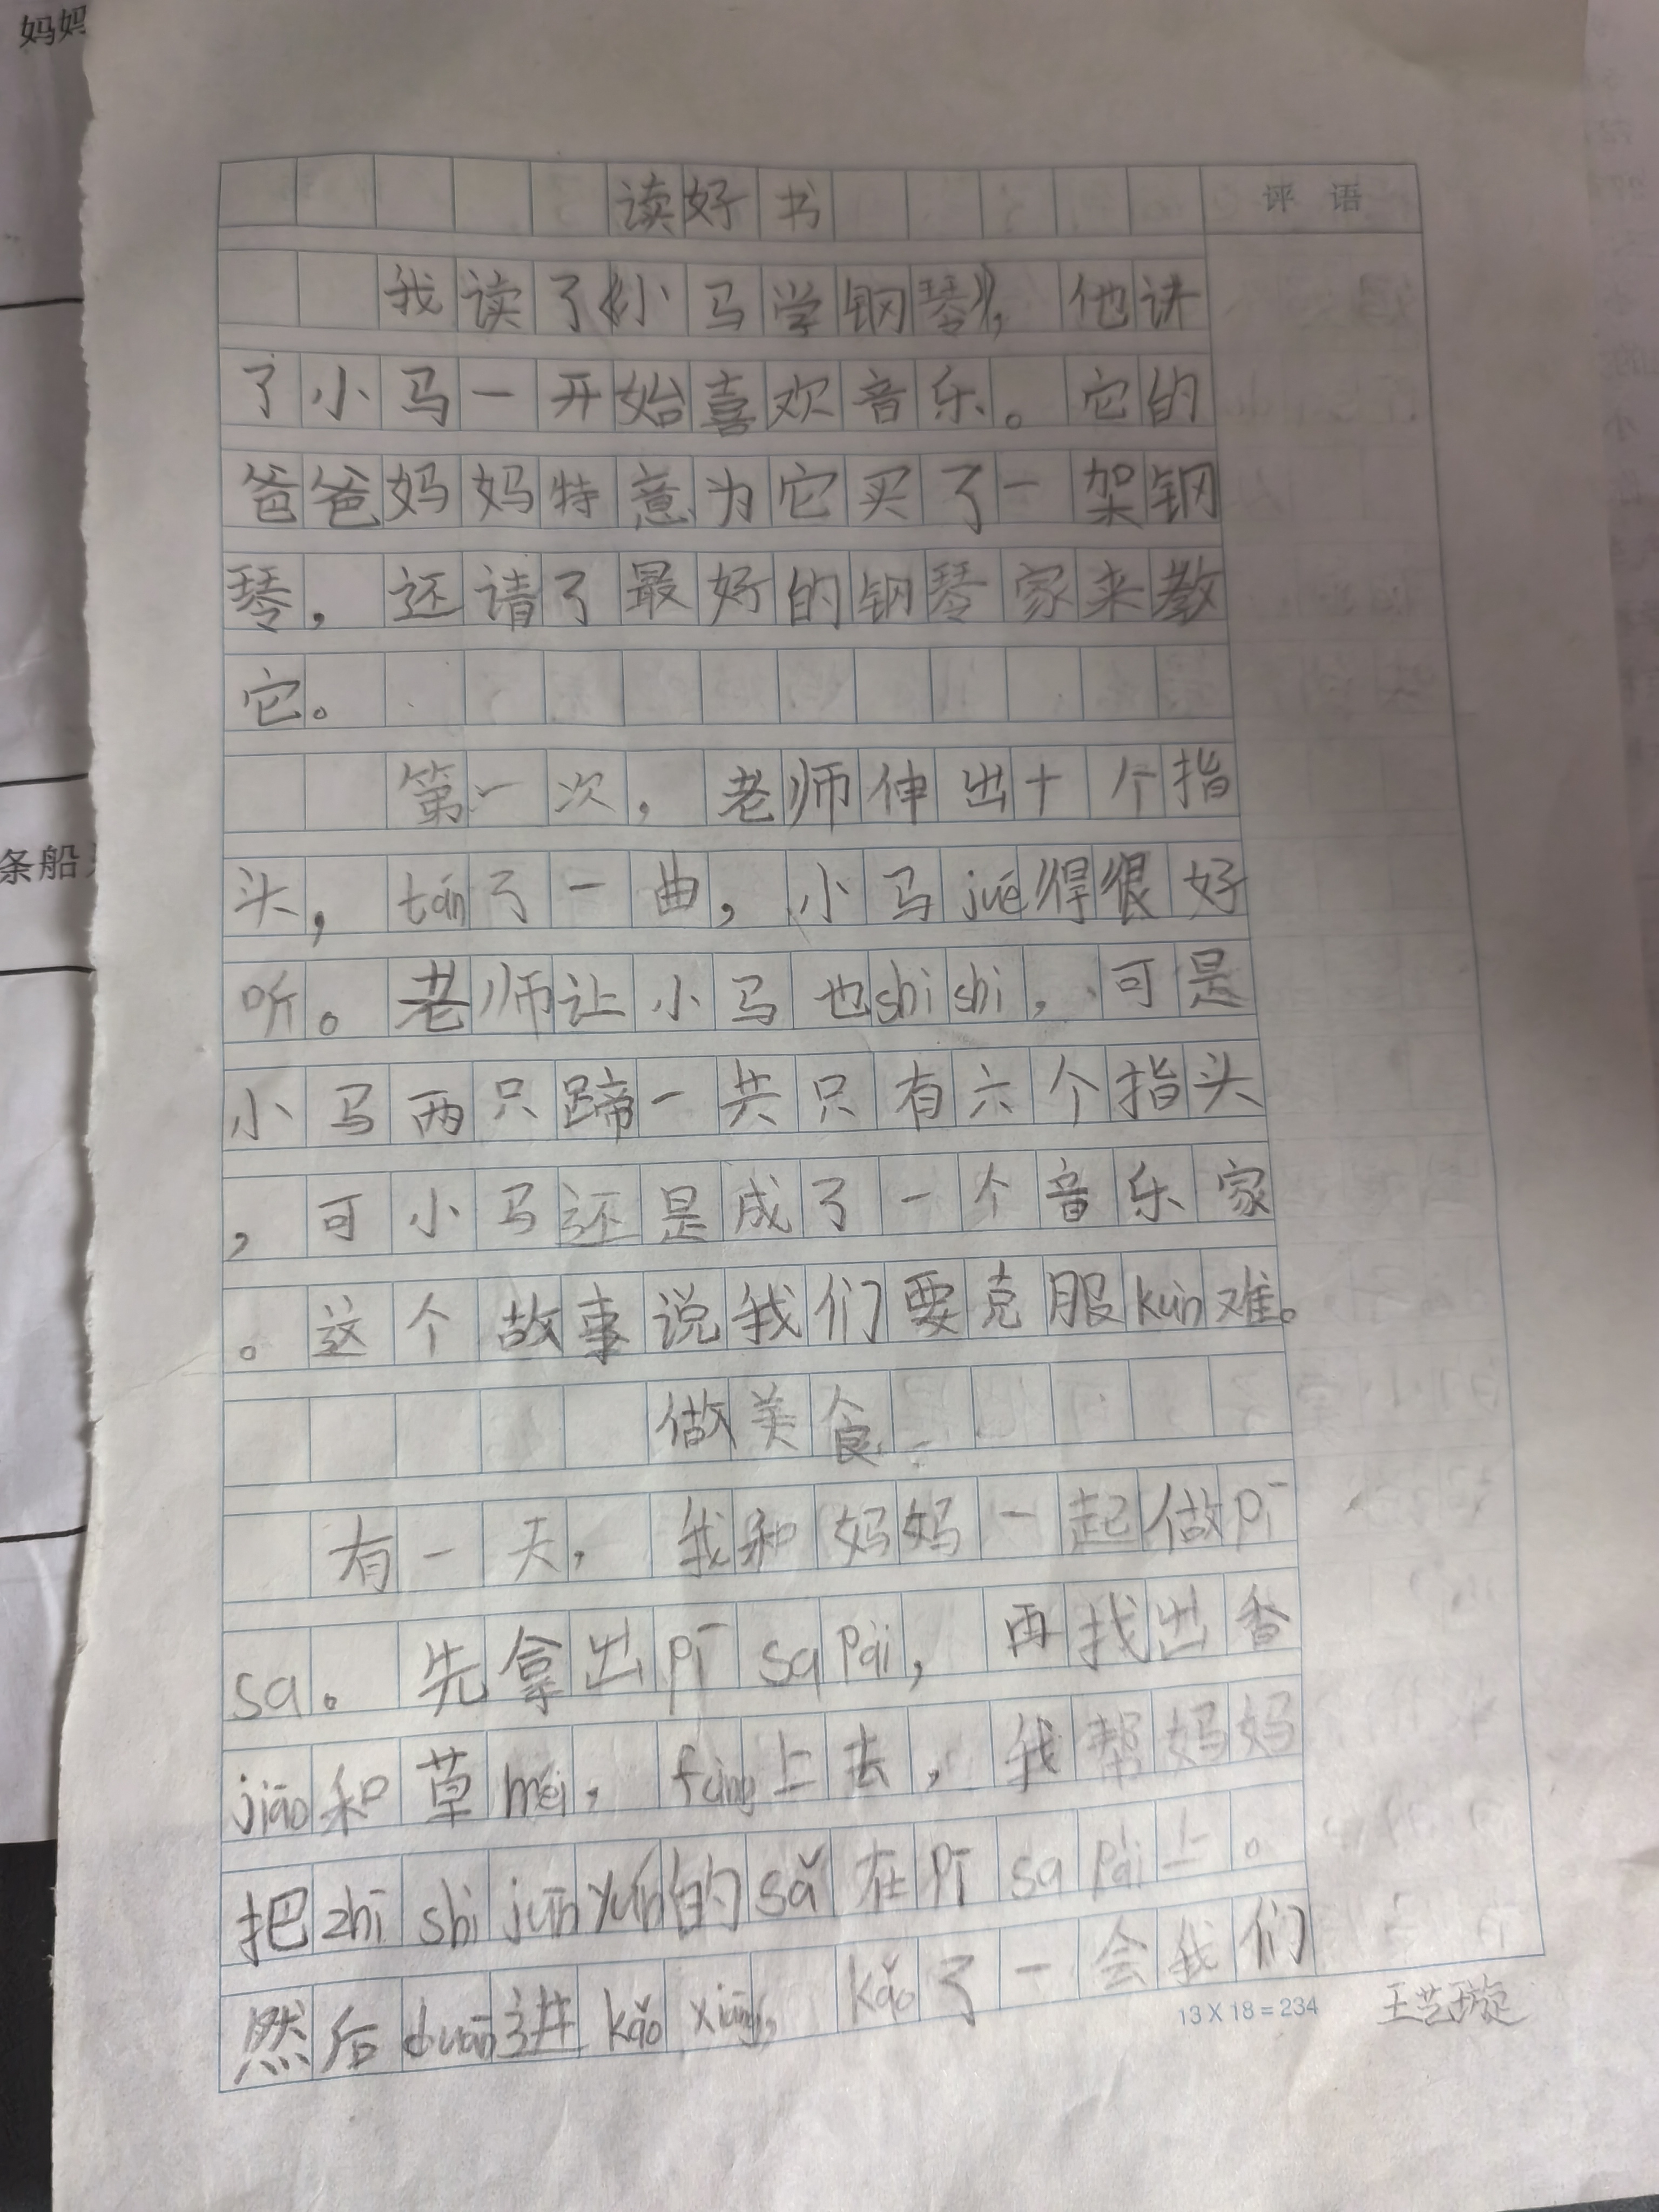 妈妈
条船
评 语
读好书
我读了《小马学钢琴》，他讲
了小马一开始喜欢音乐。它的
爸爸妈妈特意为它买了一架钢
琴，还请了最好的钢琴家来教
它。
第一次，老师伸出十个指
头，tán了一曲，小马jué得很好
听。老师让小马也shì shi，可是
小马两只蹄一共只有六个指头
，可小马还是成了一个音乐家
。这个故事说我们要克服kùn难。
做美食
有一天，我和妈妈一起做pī
sa。先拿出pī sa pái，再找出香
jiāo和草méi，fàng上去，我帮妈妈
把zhī shi jūn yún的sǎ在pī sa pái上。
然后duān进kǎo xiāng，kǎo了一会我们
13 X 18 = 234
王芸璇